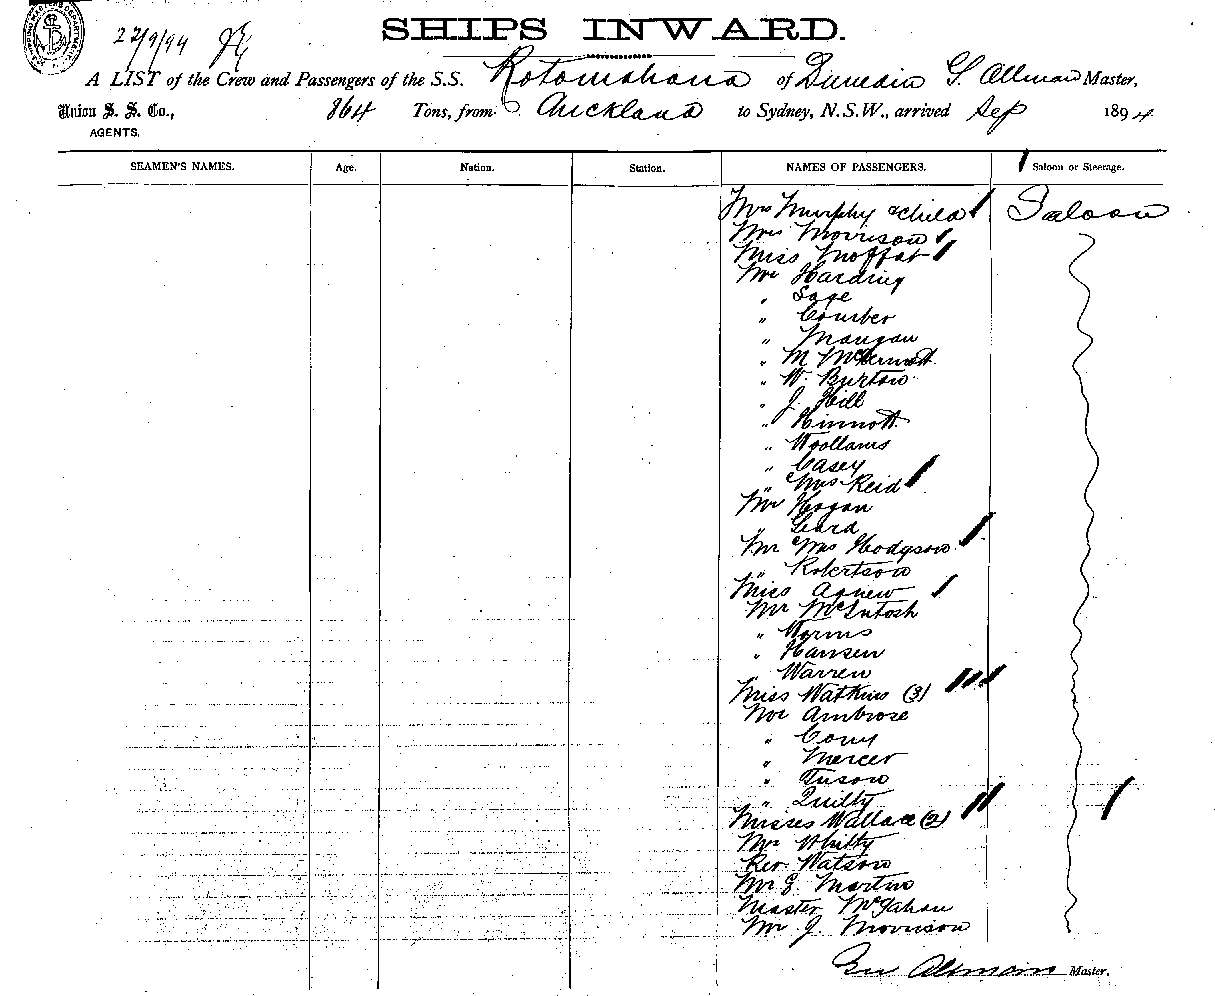 22/9/94
SHIPS INWARD.
A LIST of the Crew and Passengers of the S.S. Rotomahana of Dunedin G. Allman Master,
Union S. S. Co., 864 Tons, from Auckland to Sydney, N.S.W., arrived Sep 1894
AGENTS.
SEAMEN'S NAMES. Age. Nation. Station. NAMES OF PASSENGERS. Saloon or Steerage.
Mrs Murphy & child Saloon
Mrs Morrison
Miss Moffat
Mr Harding
" Sage
" Courber
" Mangan
" M McDermott
" W. Burton
" J. Hill
" Hinnott
" Woollams
" Casey
" Mrs Reid
Mr Hogan
" Geard
Mr Mrs Hodgson
" Robertson
Miss Agnew
Mr McIntosh
" Worms
" Hansen
" Warren
Miss Watkins (3)
Mr Ambrose
" Cory
" Mercer
" Tuson
" Quilty
Misses Wallace (2)
Mr Whitty
Rev. Watson
Mr G. Martin
Master McGahan
Mr J. Morrison
Allman Master.